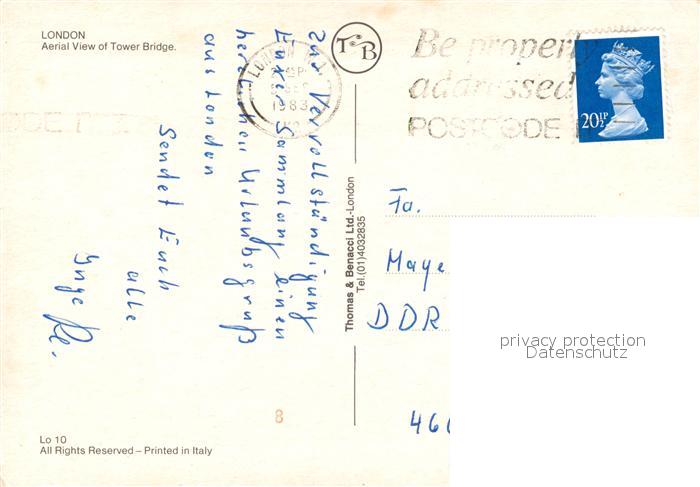 LONDON
Aerial View of Tower Bridge.
Zur Vervollständigung
Eurer Sammlung einen
herzlichen Urlaubsgruß
aus London
Sendet Euch
alle
Inge
Lo 10
All Rights Reserved – Printed in Italy
8
Thomas & Benacci Ltd.-London
Tel.(01)4032835
T B
LONDON
1983
Be properly
addressed
POSTCODE
20½P
Fa.
Maye
DDR
privacy protection
Datenschutz